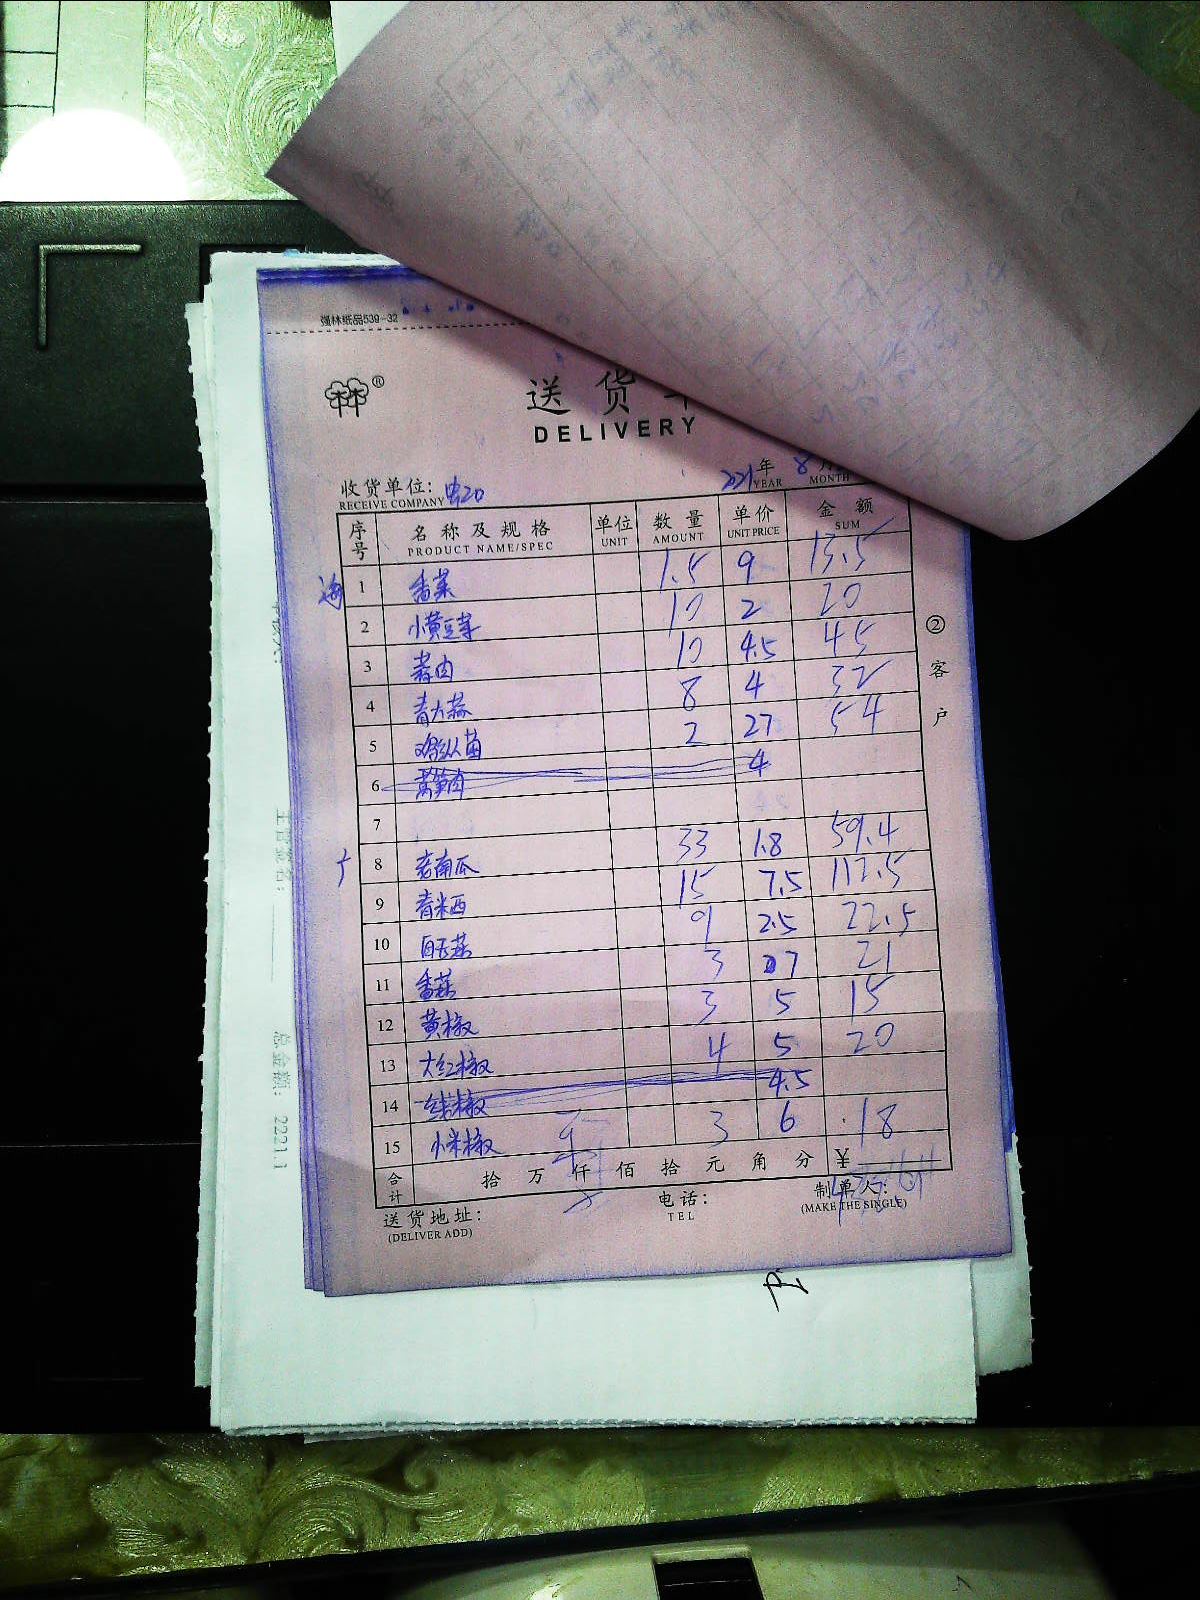 强林纸品539-32
®
送货
DELIVERY
收货单位:
RECEIVE COMPANY
2021年 8月
YEAR MONTH
序号 名称及规格 单位 数量 单价 金额
PRODUCT NAME/SPEC UNIT AMOUNT UNIT PRICE SUM
1 香菜 1.5 9 13.5
2 小黄豆芽 10 2 20
3 蒜肉 10 4.5 45
4 青大蒜 8 4 32
5 鸡纵菌 2 27 54
6 莴笋肉 4
7
8 老南瓜 33 1.8 59.4
9 青米西 15 7.5 112.5
10 9 2.5 22.5
11 香菇 3 7 21
12 黄椒 3 5 15
13 大红椒 4 5 20
14 4.5
15 小米椒 3 6 18
合计 拾万仟佰拾元角分 ¥
送货地址: 电话: 制单人:
(DELIVER ADD) TEL (MAKE THE SINGLE)
②客户
主管签名:
总金额: 2221.1